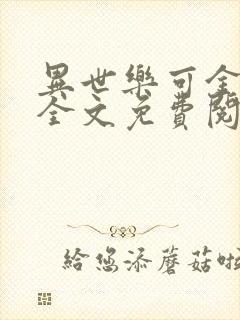 異世樂可全
全文免費閱
給您添蘑菇啦